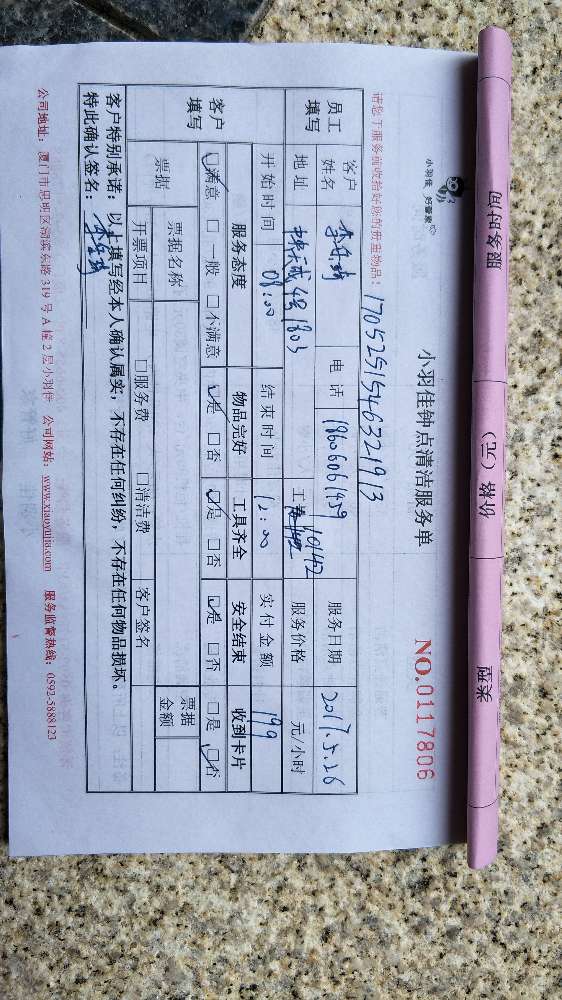 服务时间 价格（元） 频率
小羽佳 好管家
小羽佳钟点清洁服务单
NO.0117806
请您于服务前收拾好您的贵重物品：1705251546321913
员工填写 客户姓名 电话 18606061459 服务日期 2017.5.26
地址 4号1803 工 10142 服务价格 元/小时
客户填写 开始时间 08:00 结束时间 12:00 实付金额 199
服务态度 物品完好 工具齐全 安全结束 收到卡片
☑满意 □一般 □不满意 ☑是 □否 ☑是 □否 ☑是 □否 □是 ☑否
票据 票据名称 票据金额
开票项目 □服务费 □清洁费 客户签名
客户特别承诺：以上填写经本人确认属实，不存在任何纠纷，不存在任何物品损坏。
特此确认签名：
公司地址：厦门市思明区湖滨东路319号A幢2层小羽佳 公司网站：www.xiaoyujia.com 服务监督热线：0592-5888123